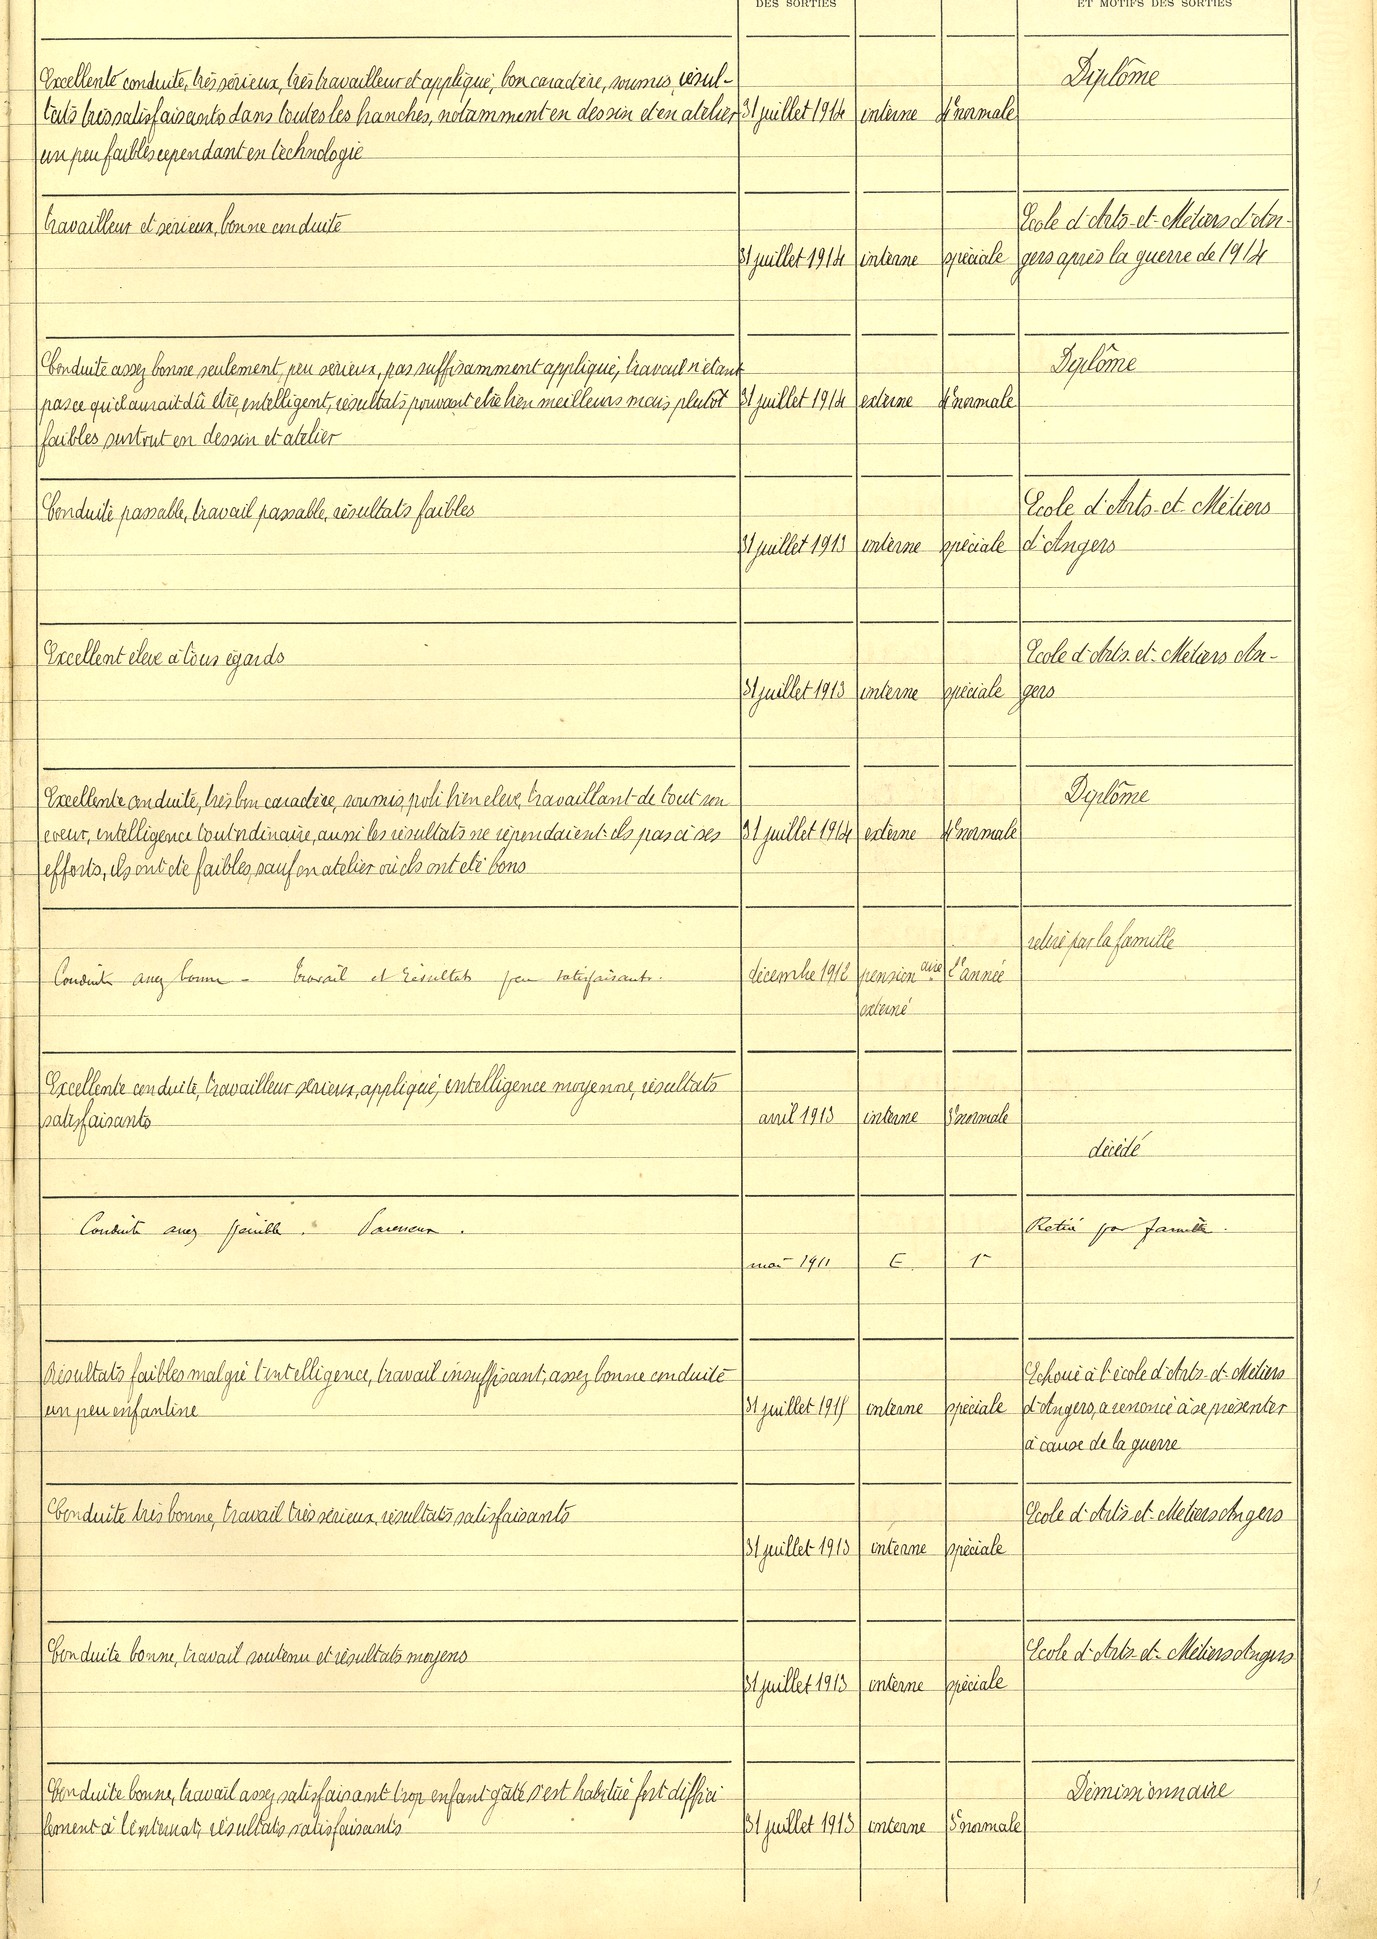 DES SORTIES
ET MOTIFS DES SORTIES
Excellente conduite, très sérieux, très travailleur et appliqué, bon caractère, soumis, résul-
tats très satisfaisants dans toutes les branches, notamment en dessin et en atelier
un peu faibles cependant en technologie
31 juillet 1914 interne 4e normale
Diplôme
travailleur et sérieux, bonne conduite
31 juillet 1914 interne spéciale
Ecole d'Arts-et-Métiers d'An-
gers après la guerre de 1914
Conduite assez bonne seulement, peu sérieux, pas suffisamment appliqué, travail n'étant
pas ce qu'il aurait dû être, intelligent, résultats pouvant être bien meilleurs mais plutôt
faibles surtout en dessin et atelier
31 juillet 1914 externe 4e normale
Diplôme
Conduite passable, travail passable, résultats faibles
31 juillet 1913 interne spéciale
Ecole d'Arts-et-Métiers
d'Angers
Excellent élève à tous égards
31 juillet 1913 interne spéciale
Ecole d'Arts-et-Métiers An-
gers
Excellente conduite, très bon caractère, soumis, poli bien élevé, travaillant de tout son
coeur, intelligence tout ordinaire, aussi les résultats ne répondaient-ils pas à ses
efforts, ils ont été faibles, sauf en atelier où ils ont été bons
31 juillet 1914 externe 4e normale
Diplôme
Conduite assez bonne - travail et résultats peu satisfaisants.
décembre 1912 pensionaire 2e année
externé
retiré par la famille
Excellente conduite, travailleur sérieux, appliqué, intelligence moyenne, résultats
satisfaisants
avril 1913 interne 3e normale
décédé
Conduite assez pénible. Paresseux.
mai 1911 E 1e
Retiré par famille.
Résultats faibles malgré l'intelligence, travail insuffisant, assez bonne conduite
un peu enfantine
31 juillet 1915 interne spéciale
Echoué à l'école d'Arts-et-Métiers
d'Angers, a renoncé à se présenter
à cause de la guerre
Conduite très bonne, travail très sérieux, résultats satisfaisants
31 juillet 1913 interne spéciale
Ecole d'Arts-et-Métiers Angers
Conduite bonne, travail soutenu et résultats moyens
31 juillet 1913 interne spéciale
Ecole d'Arts-et-Métiers Angers
Conduite bonne, travail assez satisfaisant trop enfant gâté s'est habitué fort diffici
lement à l'internat, résultats satisfaisants
31 juillet 1913 interne normale
Démissionnaire